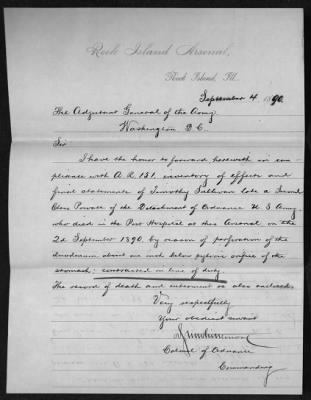 Rock Island Arsenal,
Rock Island, Ill.
September 4, 1890.
The Adjutant General of the Army
Washington D.C.
Sir
I have the honor to forward herewith in com-
pliance with A.R. 131. inventory of effects and
final statements of Timothy Sullivan late a Second
Class Private of the Detachment of Ordnance U.S. Army
who died in the Post Hospital at this Arsenal on the
2d September 1890, by reason of perforation of the
duodenum about one inch below pyloric orifice of the
stomach: contracted in line of duty.
The record of death and interment is also enclosed.
Very respectfully
Your obedient servant
Colonel of Ordnance
Commanding